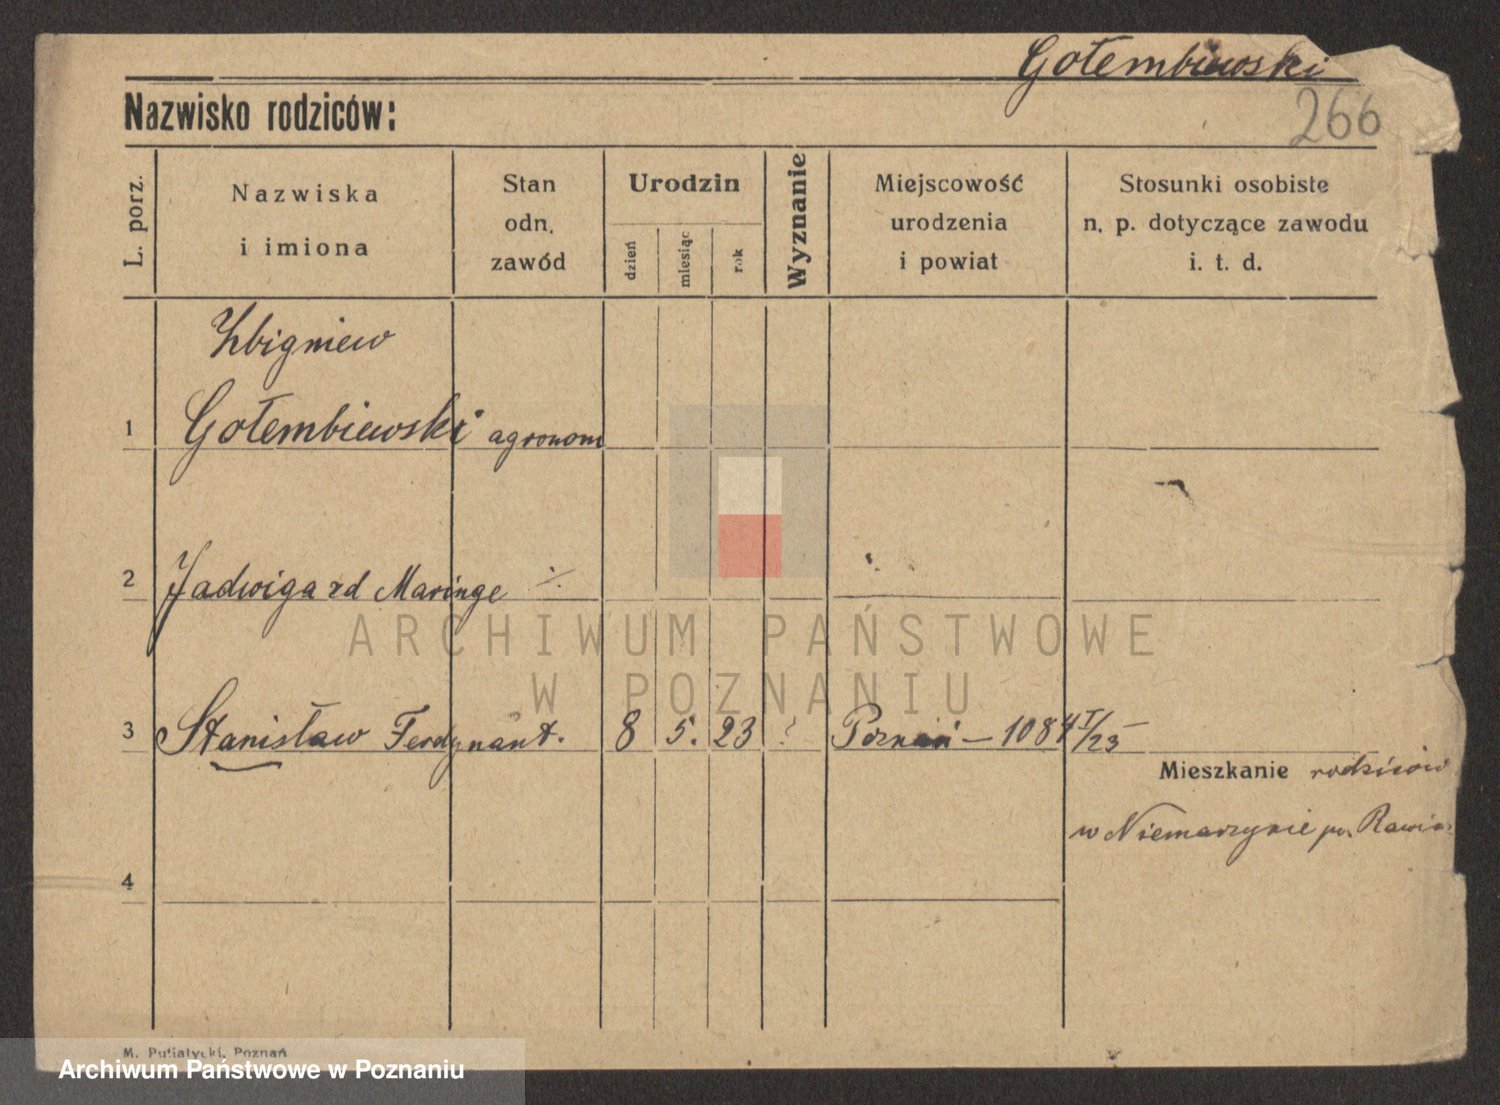 Gołembiewski
Nazwisko rodziców:
266
L. porz.
Nazwiska
i imiona
Stan
odn.
zawód
Urodzin
dzień
miesiąc
rok
Wyznanie
Miejscowość
urodzenia
i powiat
Stosunki osobiste
n. p. dotyczące zawodu
i. t. d.
Zbigniew
1 Gołembiewski agronom
2 Jadwiga zd Maringe ÷
3 Stanisław Ferdynant. 8 5. 23 ? Poznań – 1084 I/23 –
Mieszkanie rodziców
w Niemarzynie pow. Rawicz
4
ARCHIWUM PAŃSTWOWE
W POZNANIU
M. Putiatycki, Poznań
Archiwum Państwowe w Poznaniu